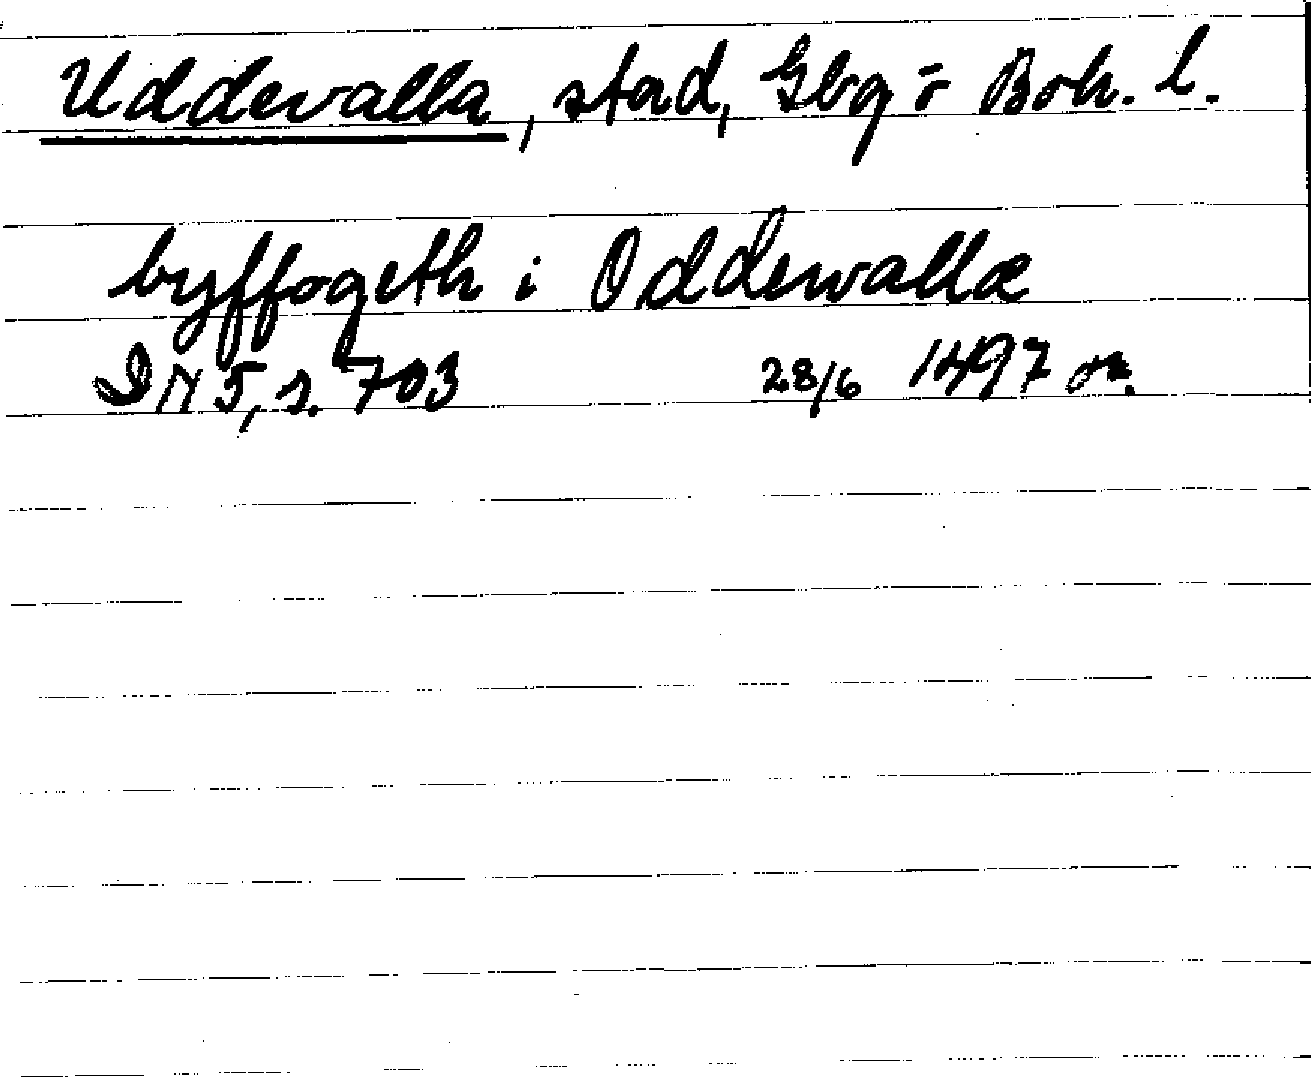 Uddevalla, stad, Gbg o Boh. l.
byffogeth i Oddewallæ
DN 5, s. 703 28/6 1497 or.